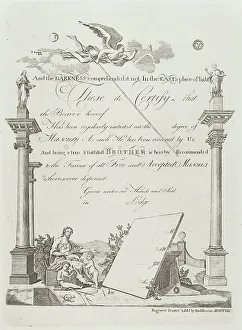 And the DARKNESS comprehended it not. In the EAST a place of light
These do Certify that
the Bearer hereof
Has been regularly initiated at the degree of
Masonry As such He has been received by Us
And being a true & faithful BROTHER is hereby Recommended
to the Favour of all Free and Accepted Masons
wheresoever dispersed
Given under our Hands and Seal
in Lodge
Engraved Printed & Sold by Paul Revere BOSTON